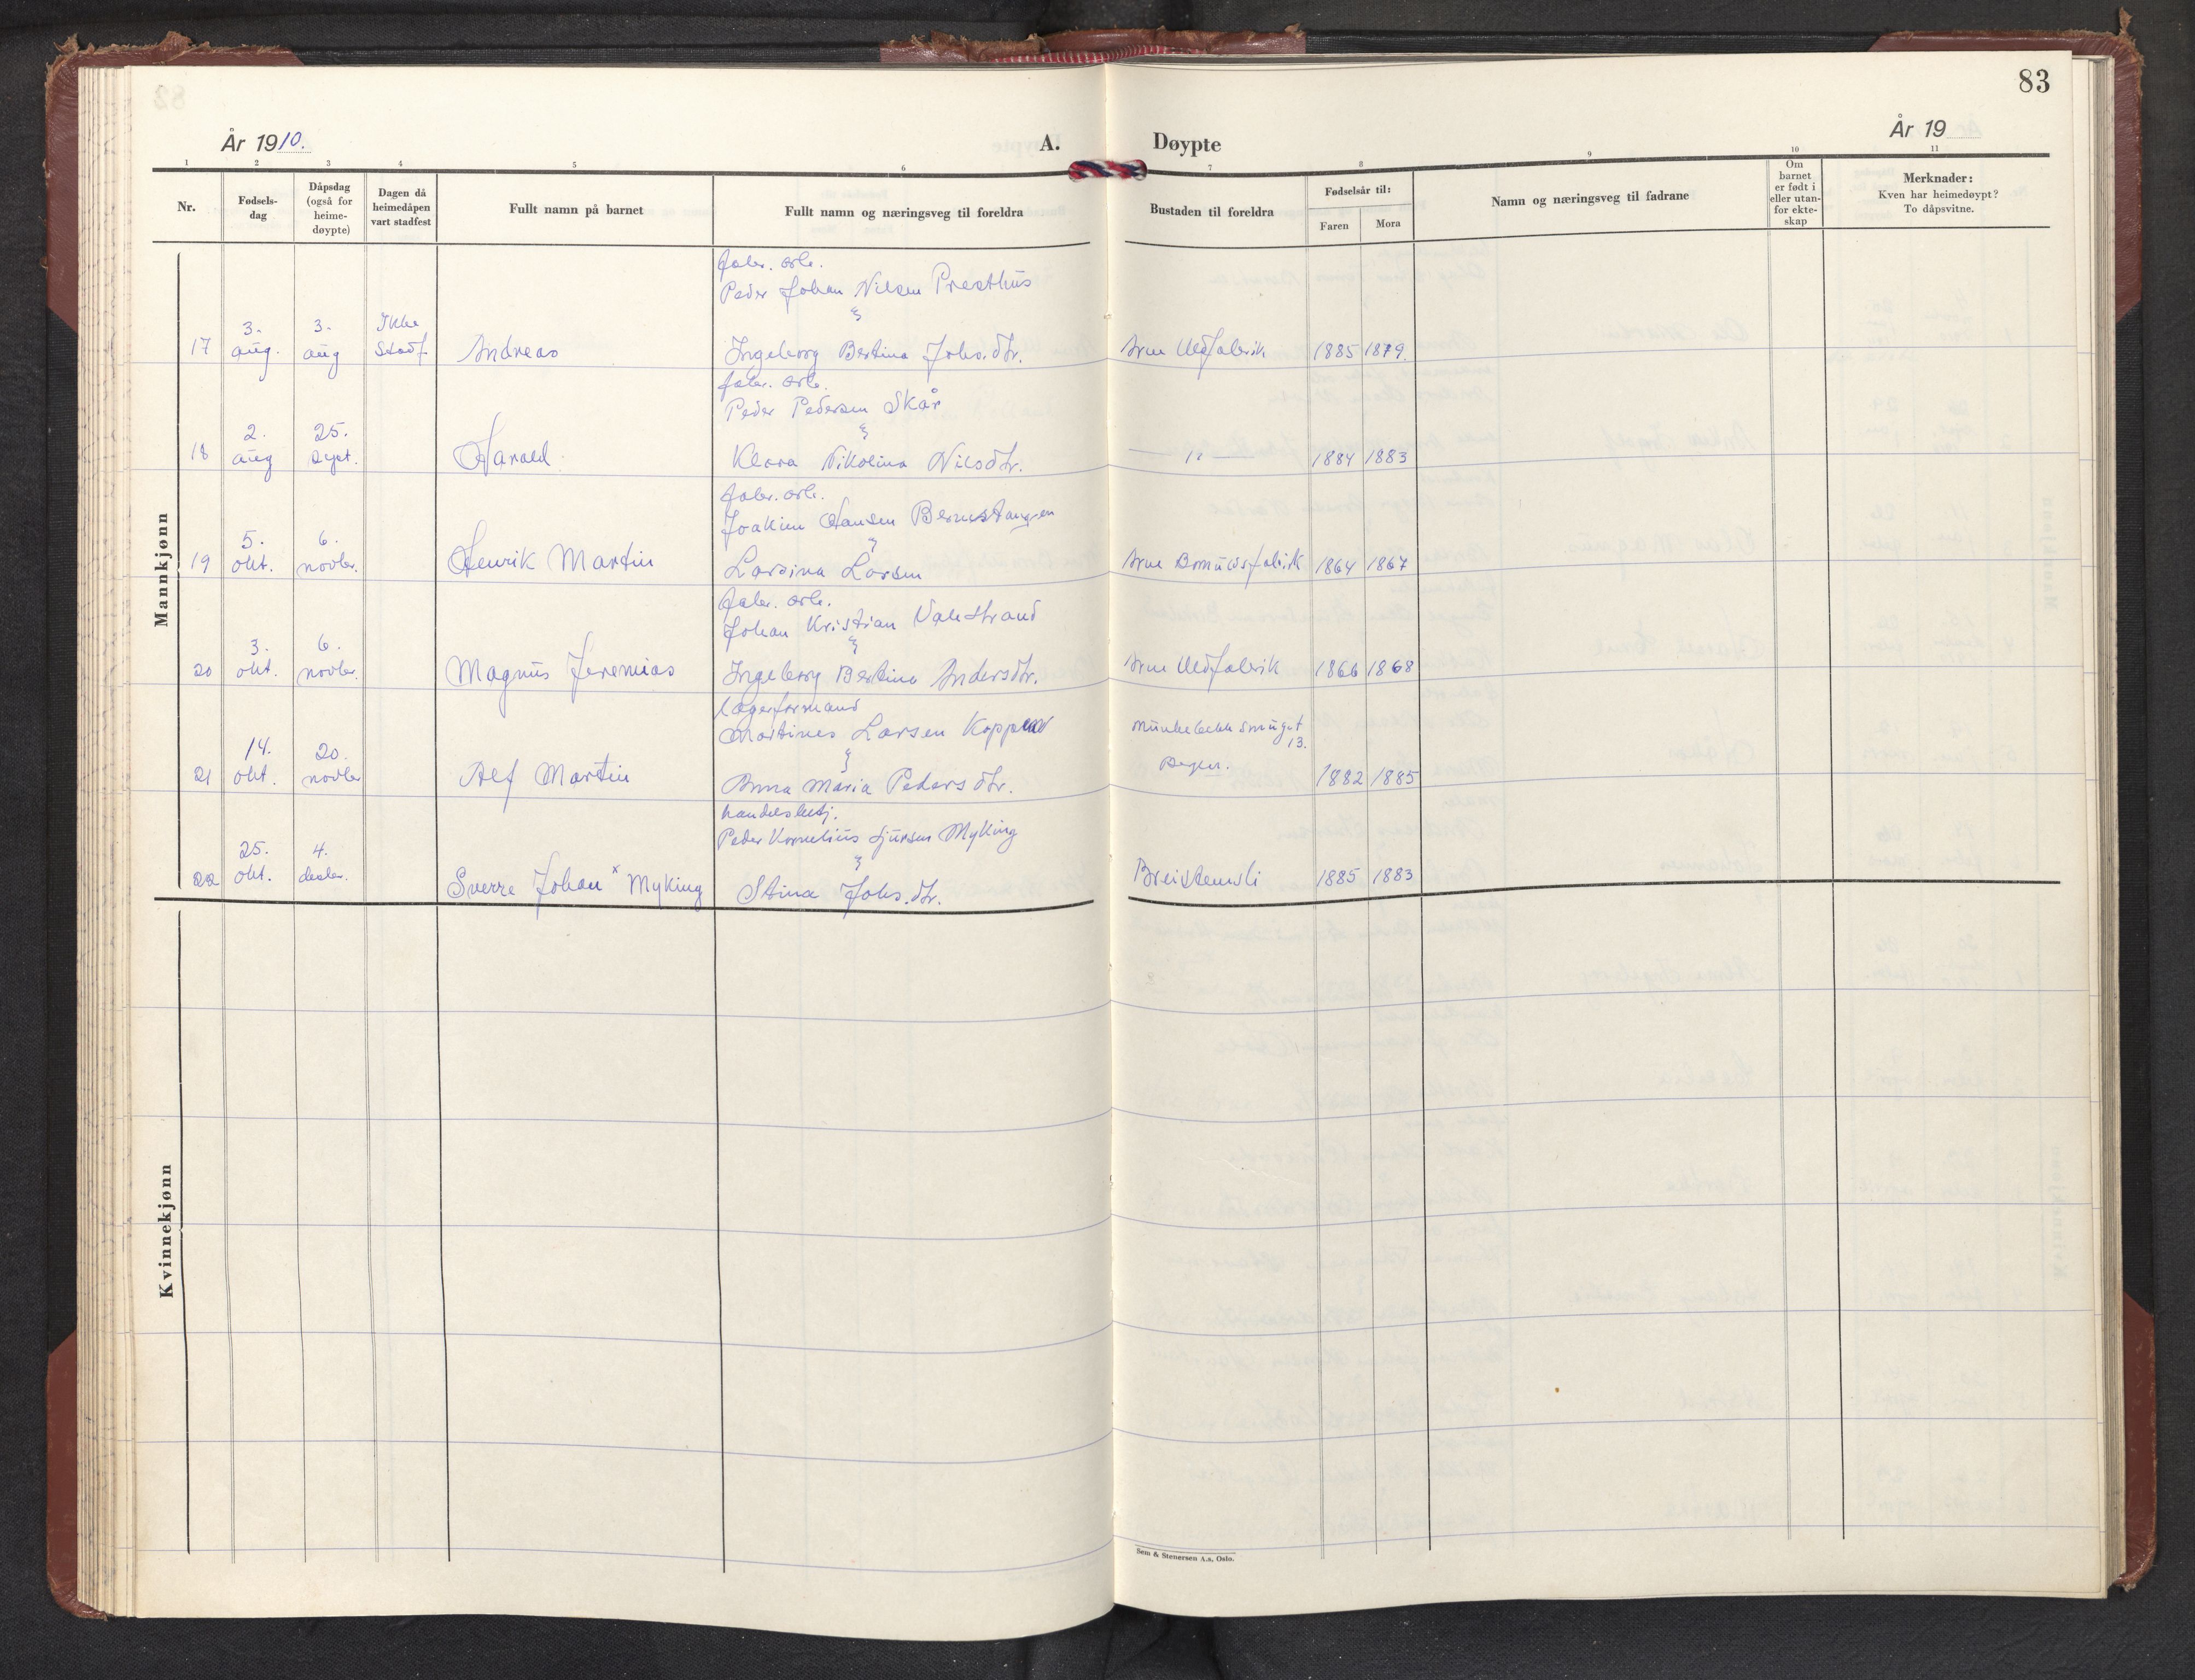 83
År 1910.
A.
Døypte
År 19
1 2 3 4 5 6 7 8 9 10 11
Nr.
Fødsels-
dag
Dåpsdag
(også for
heime-
døypte)
Dagen då
heimedåpen
vart stadfest
Fullt namn på barnet
Fullt namn og næringsveg til foreldra
Bustaden til foreldra
Fødselsår til:
Faren Mora
Namn og næringsveg til fadrane
Om
barnet
er født i
eller utan-
for ekte-
skap
Merknader:
Kven har heimedøypt?
To dåpsvitne.
Mannkjønn
fabr. arb.
Peder Johan Nilsen Presthus
3. 3. Ikke
17 aug. aug stadf. Andreas Ingeborg Bertina Johs.dtr. Arne Uldfabrik 1885 1879.
fabr. arb.
Peder Pedersen Skår
2. 25.
18 aug sept. Harald Klara Nikolina Nilsdtr. — " — 1884 1883
fabr. arb.
Joakim Hansen Bernestangen
5. 6.
19 okt. novbr. Henrik Martin Larsina Larsen Arne Bomuldsfabrik 1864 1867
fabr. arb.
Johan Kristian Valestrand
3. 6.
20 okt. novbr. Magnus Jeremias Ingeborg Bertina Andersdtr. Arne Uldfabrik 1866 1868
lagerformand
Martines Larsen Koppen Munkebekksmuget
13.
14. 20.
21 okt. novbr Alf Martin Anna Maria Pedersdtr. Bergen. 1882 1885
handelsbetj.
Peder Kornelius Sjursen Myking
25. 4.
22 okt. decbr. Sverre Johan x Myking Stina Johs.dtr. Breistensli 1885 1883
Kvinnekjønn
Sem & Stenersen A.s, Oslo.